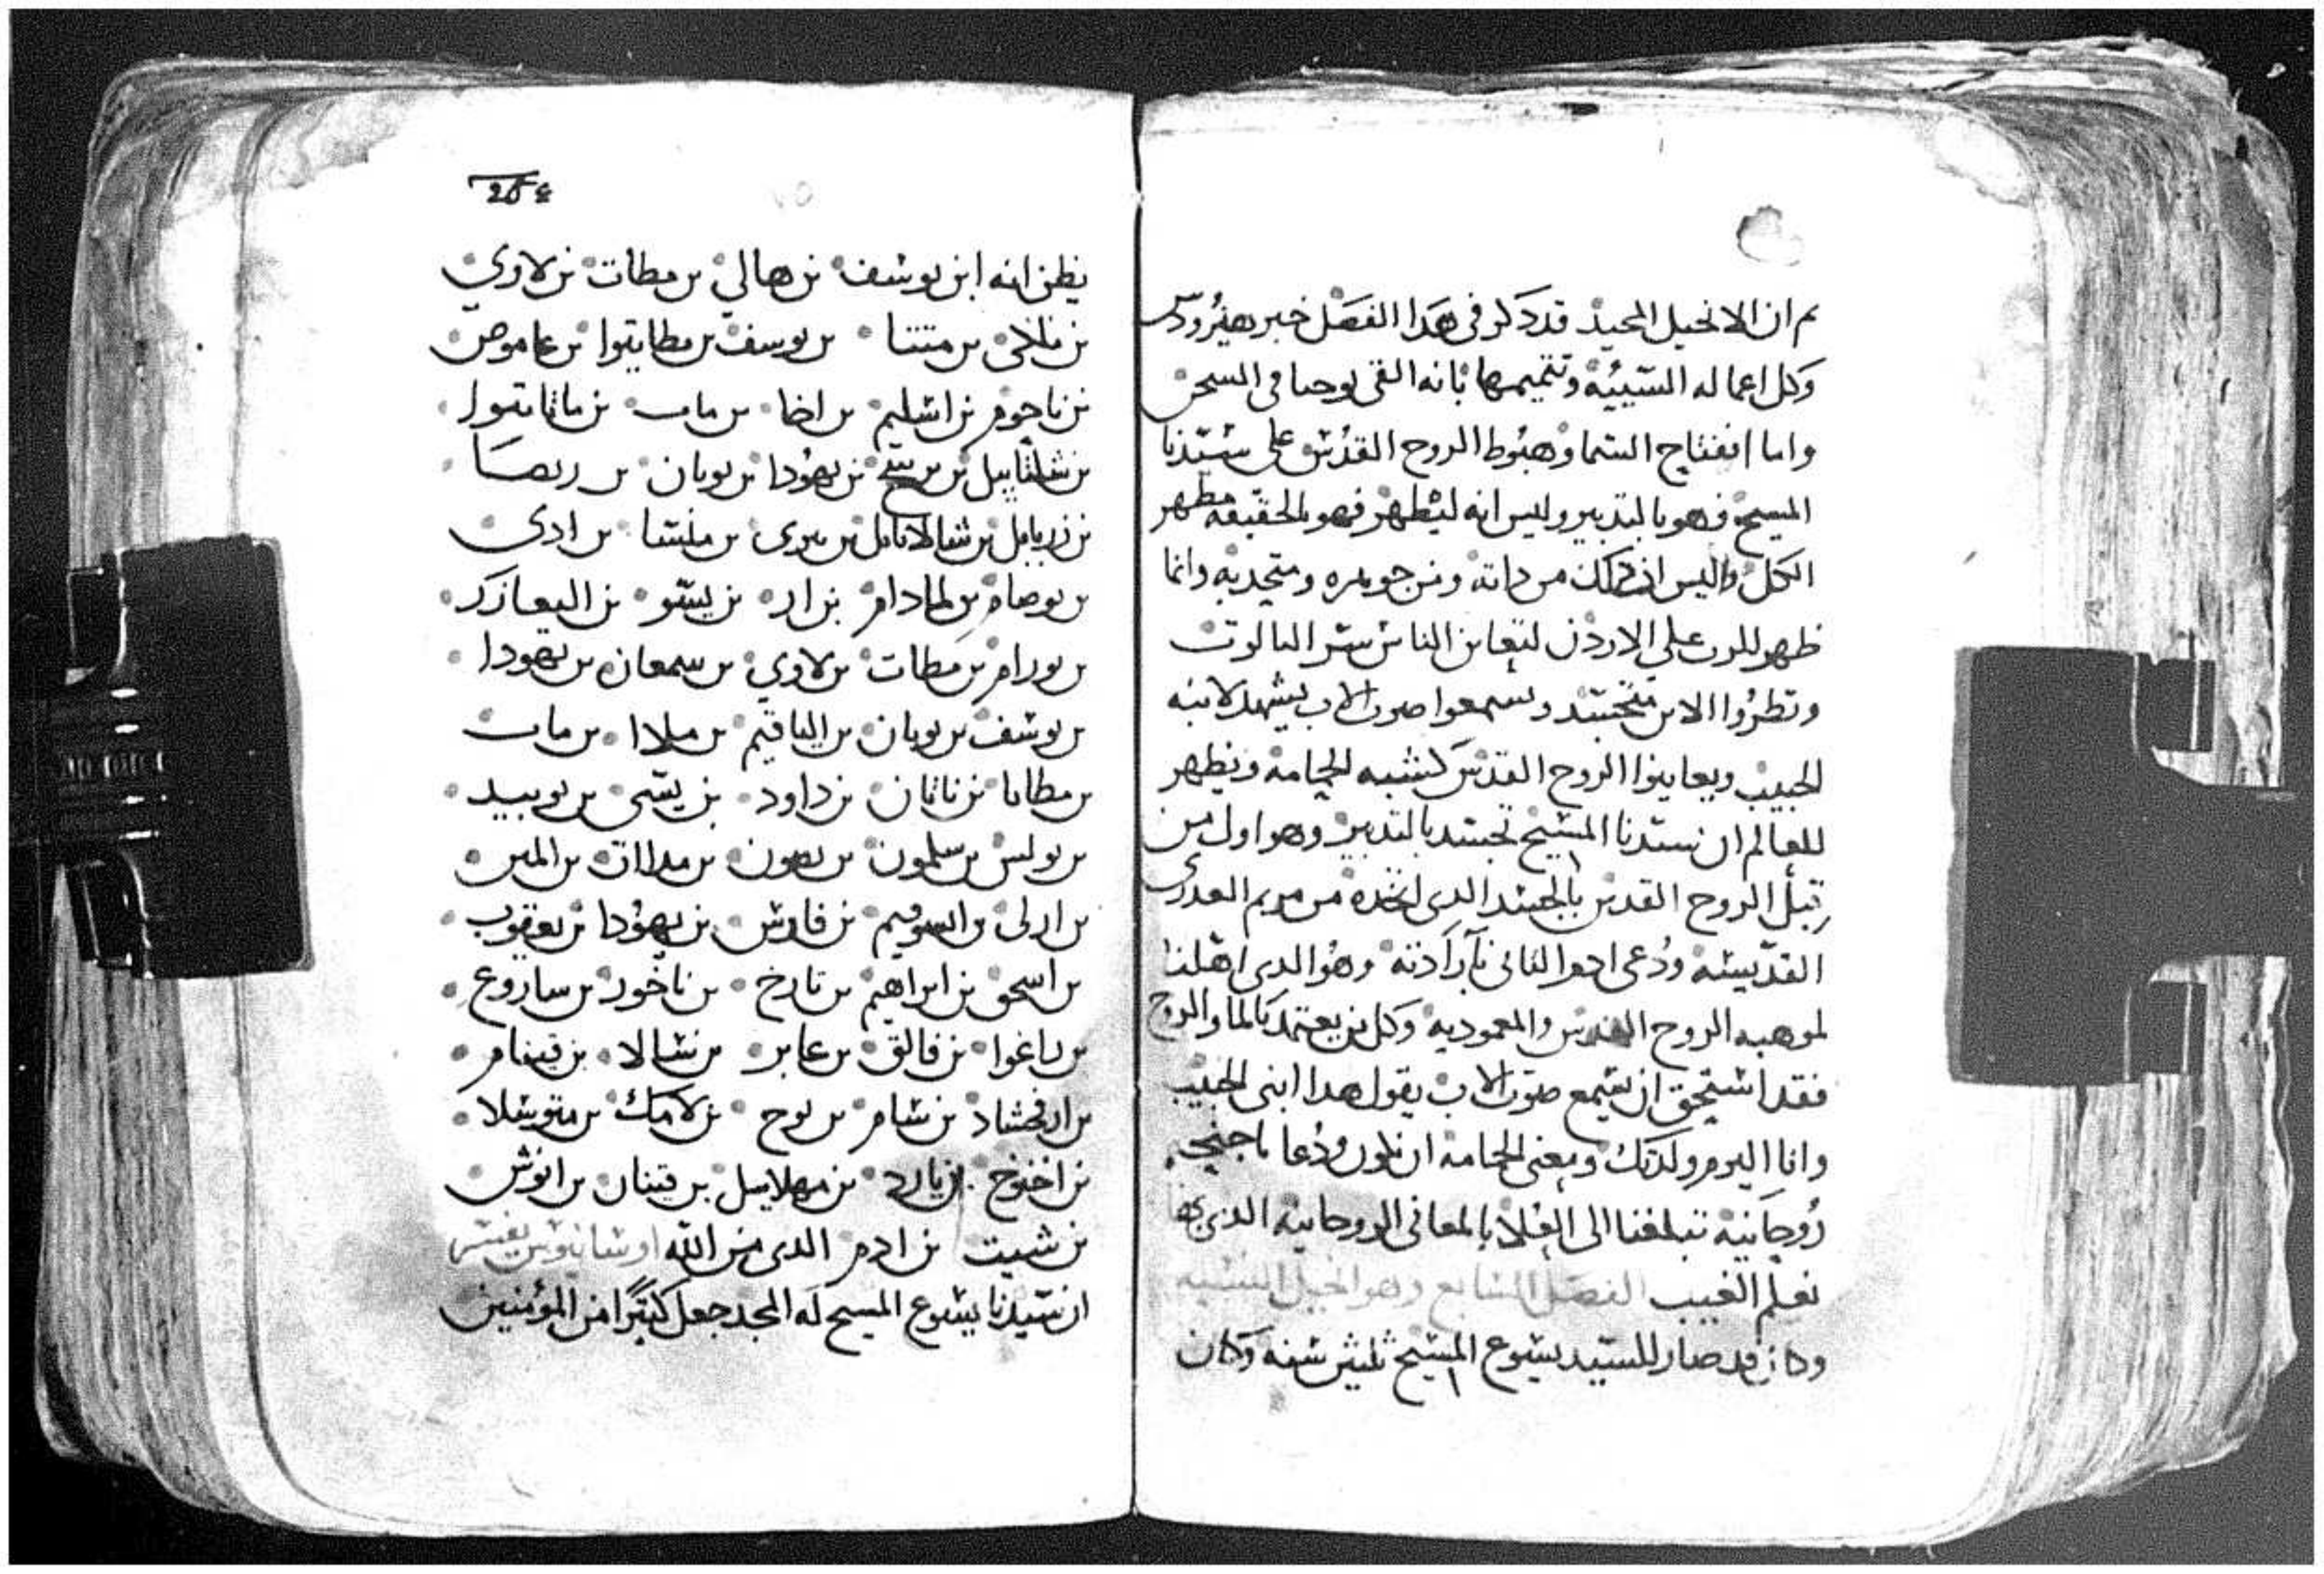 ثم ان الانجيل المجيد قد ذكر فى هذا الفصل خبر هيرودس
وكل اعماله السّيئيه وتتميمها بانه القى يوحنا فى السجن
واما انفتاح السما وهبوط الروح القدس على سيّدنا
المسيح فهو بالتدبير وليس انه ليتطهر فهو بالحقيقه مطهر
الكل وليس ان ذلك من ذاته ومن جوهره ومتحد به وانما
ظهور الرب على الاردن لتعاين الناس ستر الثالوت
وتظروا الابن متجسد ويسمعوا صوت الاب يشهد لابنه
الحبيب ويعاينوا الروح القدس كشبه الحمامة ويظهر
للعالم ان سيدنا المسيح تجسد بالتدبير وهو اول من
قبل الروح القدس بالجسد الدى اتخده من مريم العدرى
القدّيسه ودُعى ادم التانى بآرآدته وهو الدى اهلنا
لموهبه الروح القدس والمعموديه وكل من يعتمد بالما والروح
فقد استحق ان يسمع صوت الاب يقول هدا ابنى الحبيب
وانا اليوم ولدتك ومعنى الحمامة ان نكون ودعا باجنحه
رُوحانيه تبلغنا الى العُلا بالمعانى الروحانيه الذى بها
نعلم الغيب الفصل السابع وهو انجيل النسبه
وكان قد صار للسّيد يسوع المسيح ثلثين سنه وكان
٢٥٤
يظن انه ابن يوسف بن هالي بن مطات بن لاوي
بن ملكى بن متتا بن يوسف بن مطاتيوا بن عاموص
بن ناحوم بن اشليم بن اخا بن مات بن ماتاتيوا
بن شلتاييل بن يهودا بن يونان بن ريصا
بن زربابل بن شالاتايل بن نيرى بن ملشا بن ادى
بن يوصام بن لمادام بن ار بن يسّو بن اليعازر
بن يورام بن مطات بن لاوي بن سمعان بن يهودا
بن يوسف بن يونان بن الياقيم بن ملاا بن مات
بن مطاتا بن ناتان بن داود بن يسّى بن يوبيد
بن بولس بن سلمون بن نصون بن
بن فارس بن يهودا بن يعقوب
بن اسحق بن ابراهيم بن تارخ بن ناخور بن ساروع
بن راغوا بن فالق بن عابر بن شالا بن قينام
بن ارفخشاد بن شام بن نوح بن لامك بن متوشلا
بن اخنوخ بن يارد بن مهلاييل بن قينان بن انوش
بن شيت بن ادم الدى من الله اوسانيوس يفسر
ان سّيدنا يسوع المسيح له المجد جعل كثيرًا من المؤمنين